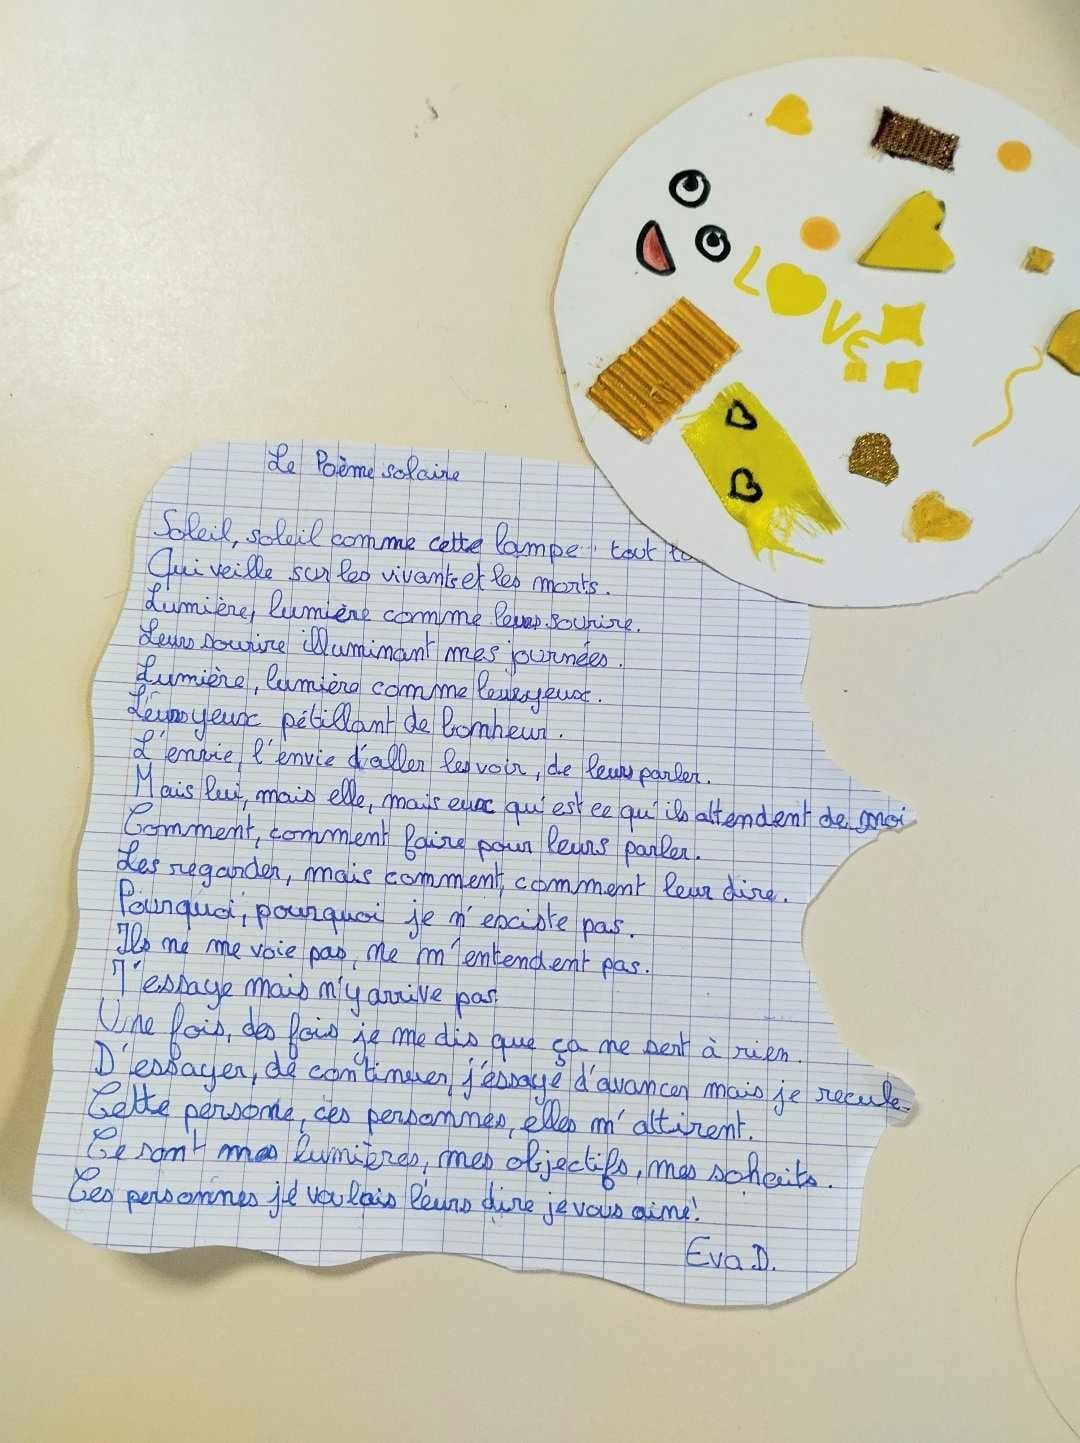 LOVE
Le Poème solaire
Soleil, soleil comme cette lampe, tout
Qui veille sur les vivants et les morts.
Lumière, lumière comme leurs sourire.
Leurs sourire illuminant mes journées.
Lumière, lumière comme leurs yeux.
Leurs yeux pétillant de bonheur.
L'envie, l'envie d'aller les voir, de leurs parler.
Mais lui, mais elle, mais eux qu'est ce qu'ils attendent de moi
Comment, comment faire pour leurs parler.
Les regarder, mais comment, comment leur dire.
Pourquoi, pourquoi je n'existe pas.
Ils ne me voie pas, ne m'entendent pas.
J'essaye mais n'y arrive pas.
Une fois, des fois je me dis que ça ne sert à rien.
D'essayer, de continuer, j'essaye d'avancer mais je recule.
Cette persone, ces personnes, elles m'attirent.
Ce sont mes lumières, mes objectifs, mes soheits.
Ces personnes je voulais leurs dire je vous aime!
Eva D.